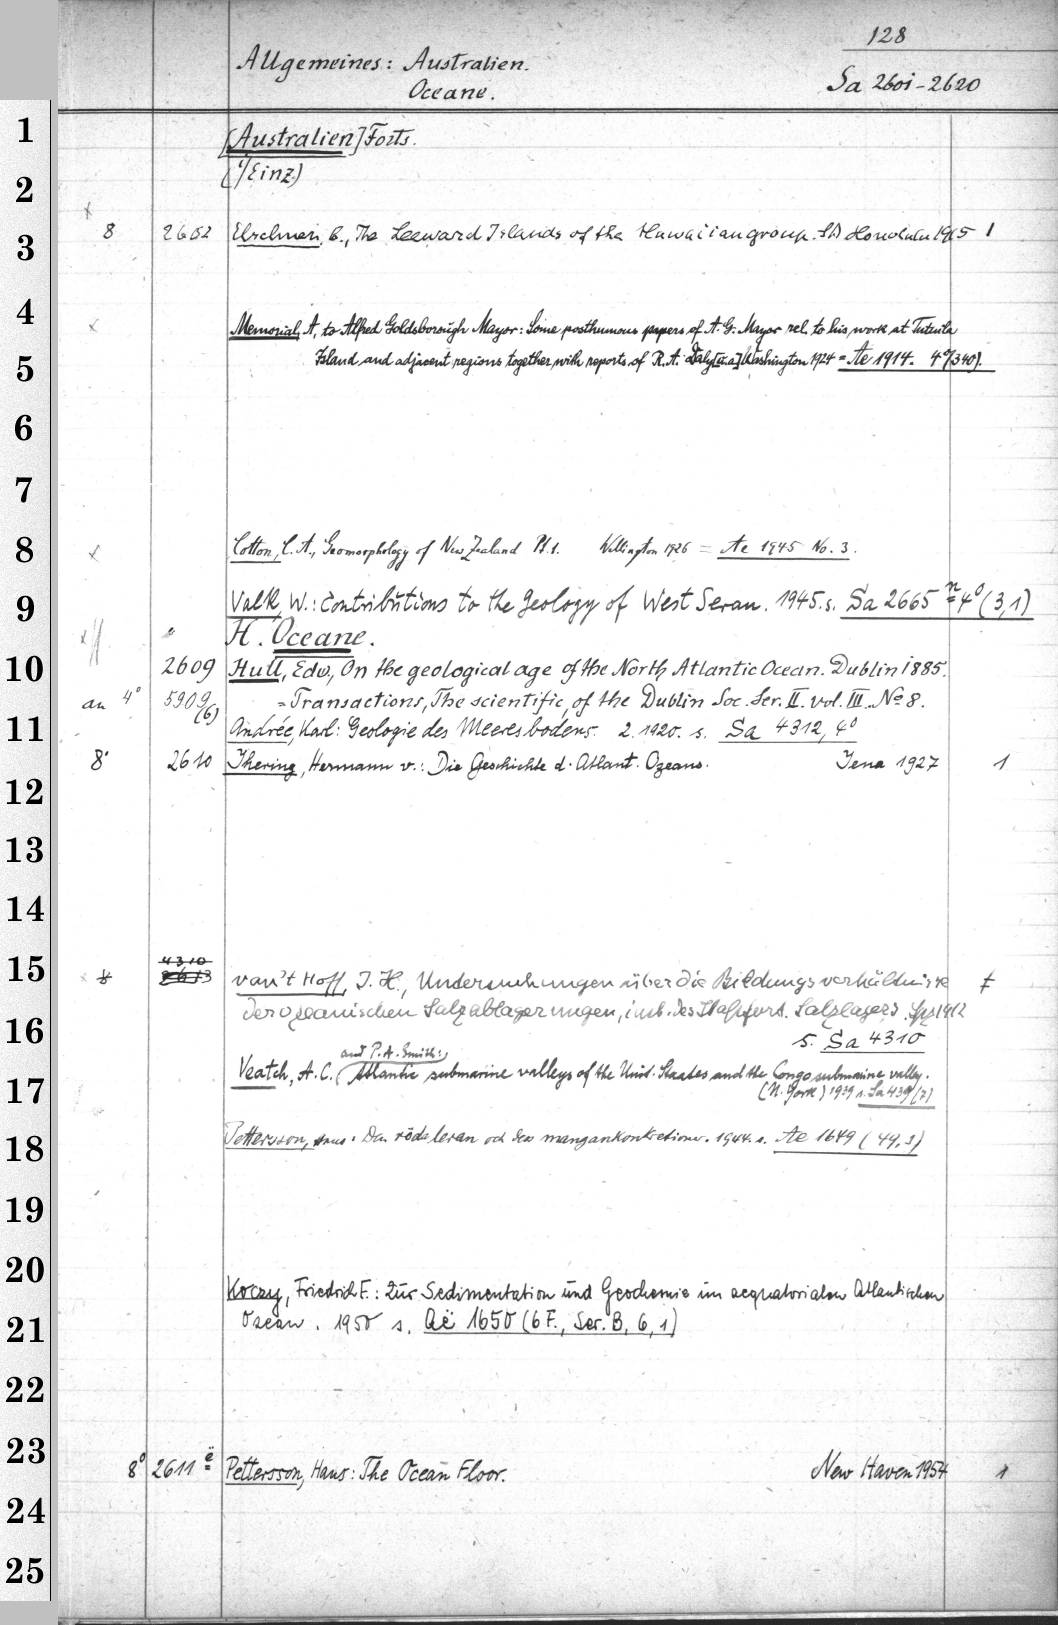 128
Allgemeines: Australien.
Oceane.
Sa 2601-2620
1
[Australien] Forts.
(1/Einz)
2
3
8 2602 Elschner, C., The Leeward Islands of the Hawaiian group. SA Honolulu 1915 1
4
Memorial, A, to Alfred Goldsborough Mayor: Some posthumous papers of A. G. Mayor rel. to his work at Tutuila
5
Island and adjacent regions together with reports of R. A. Daly [u. a.] Washington 1924 = Ae 1914. 4° (340).
6
7
8
Cotton, C. A., Geomorphology of New Zealand Pt. 1. Wellington 1926 = Ae 1945 No. 3.
9
Valk, W.: Contributions to the Geology of West Seran. 1945. s. Sa 2665 n = 4° (3,1)
H. Oceane.
10
2609 Hull, Edw., On the geological age of the North Atlantic Ocean. Dublin 1885.
an 4° 5909 (6) = Transactions, The scientific, of the Dublin Soc. Ser. II. vol. III. No 8.
11
Andrée, Karl: Geologie des Meeresbodens. 2. 1920. s. Sa 4312, 4°
8° 2610 Ihering, Hermann v.: Die Geschichte d. Atlant. Ozeans. Jena 1927 1
12
13
14
15
4310
2613
van't Hoff, J. H., Untersuchungen über die Bildungsverhältnisse
der ozeanischen Salzablagerungen, insb. des Stassfurt. Salzlagers. Lpz 1912
16
s. Sa 4310
and P. A. Smith:
Veatch, A. C. Atlantic submarine valleys of the Unit. Staates and the Congo submarine valley.
17
(N. York) 1939 s. Sa 439 (7)
18
Pettersson, Hans: Den röda leran och den mangankonkretioner. 1944. s. Ae 1649 (49,3)
19
20
Koczy, Friedrich F.: Zur Sedimentation und Geochemie im aequatorialen Atlantischen
21
Ozean. 1950 s. Aë 1650 (6 F., Ser. B, 6, 1)
22
23
8° 2611 ë = Pettersson, Hans: The Ocean Floor. New Haven 1954 1
24
25